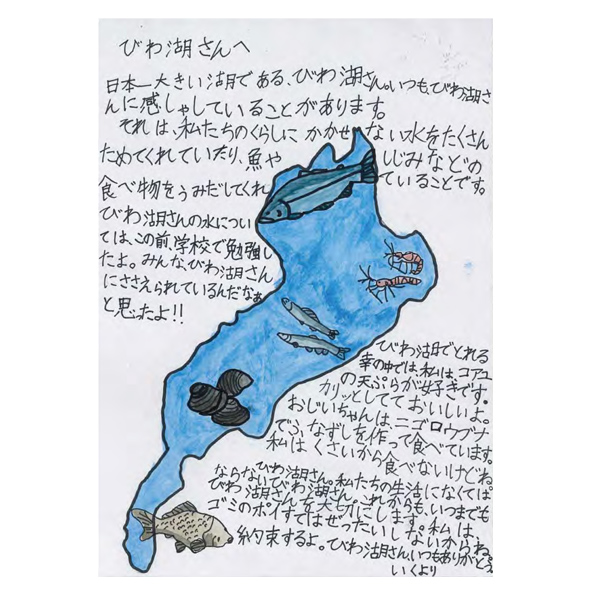 びわ湖さんへ
日本一大きい湖である、びわ湖さん。いつも、びわ湖さ
んに感しゃしていることがあります。
それは、私たちのくらしにかかせない水をたくさん
ためてくれていたり、魚やしじみなどの
食べ物をうみだしてくれていることです。
びわ湖さんの水につい
ては、この前、学校で勉強し
たよ。みんな、びわ湖さん
にささえられているんだなぁ
と思ったよ!!
びわ湖でとれる
幸の中では、私は、コアユ
の天ぷらが好きです。
カリッとしてておいしいよ。
おじいちゃんは、ニゴロウブナ
でふなずしを作って食べています。
私はくさいから食べないけどね。
びわ湖さん。私たちの生活になくては
ならないびわ湖さん。これからも、いつまでも
びわ湖さんを大切にします。私は、
ゴミのポイすてはぜったいしないからね。
約束するよ。びわ湖さん、いつもありがとう。
いくより